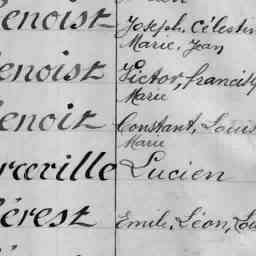 enoist Joseph, Célestin
Marie, Jean
enoist Victor, francis
Marie
enoit Constant, Louis
Marie
rceville Lucien
érest Emile, Léon, Lo